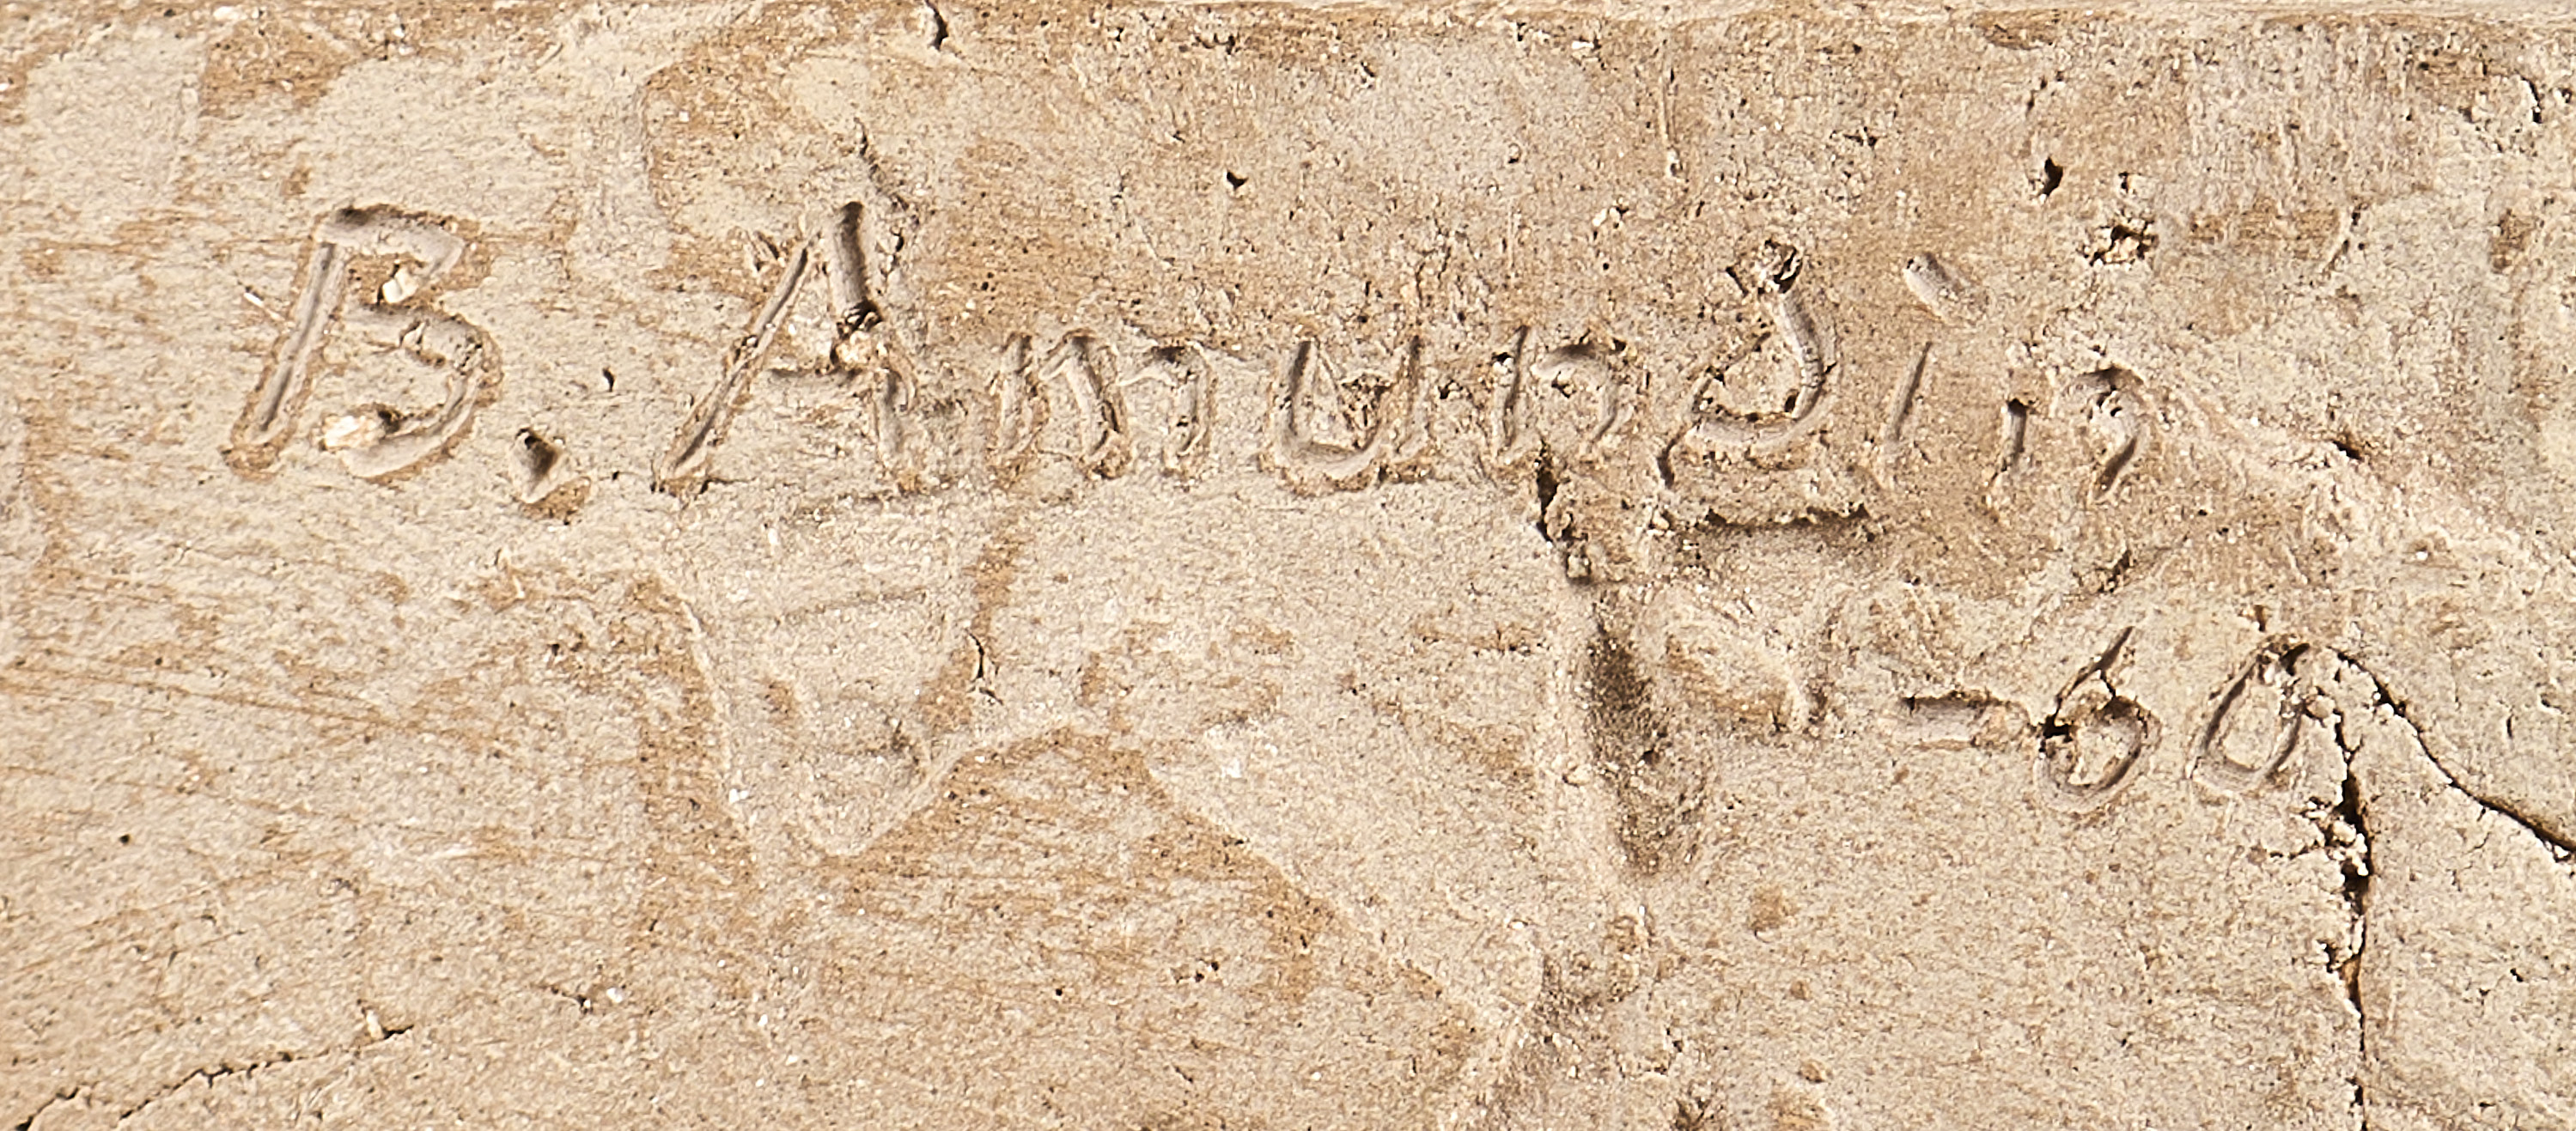 B. Amundin
-60